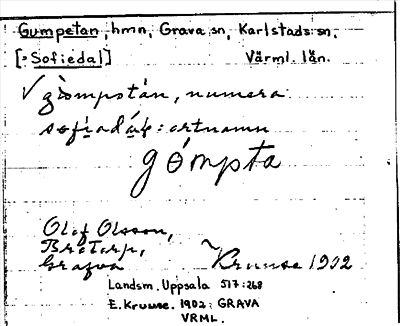 Gumpetan, hmn, Grava sn, Karlstads sn.
[: Sofiedal] Värml. län.
√ gòmpstán, numera
sofiadál: ortnamn
gómpta
Olof Olsson,
Brötorp,
Grafva Kruuse 1902
Landsm. Uppsala 517:268
E. Kruuse. 1902: GRAVA
VRML.